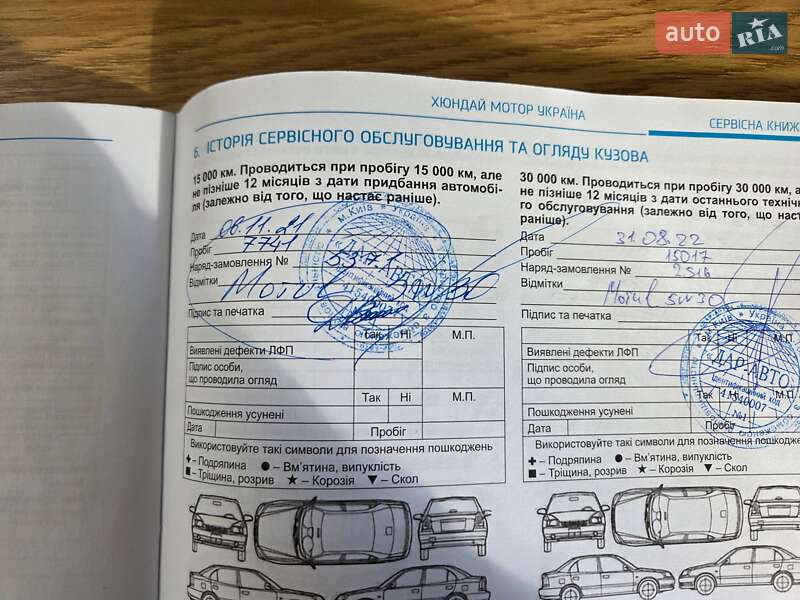 auto RIA.com
ХЮНДАЙ МОТОР УКРАЇНА
СЕРВІСНА КНИЖ
6. ІСТОРІЯ СЕРВІСНОГО ОБСЛУГОВУВАННЯ ТА ОГЛЯДУ КУЗОВА
15 000 км. Проводиться при пробігу 15 000 км, але
не пізніше 12 місяців з дати придбання автомобі-
ля (залежно від того, що настає раніше).
Дата 06.11.21
Пробіг 7741
Наряд-замовлення №
Відмітки Motul
Підпис та печатка
м.Київ * Україна
«ДАР-АВТО»
Так Ні М.П.
Виявлені дефекти ЛФП
Підпис особи,
що проводила огляд
Так Ні М.П.
Пошкодження усунені
Дата Пробіг
Використовуйте такі символи для позначення пошкоджень
+ – Подряпина ● – Вм'ятина, випуклість
■ – Тріщина, розрив ★ – Корозія ▼ – Скол
30 000 км. Проводиться при пробігу 30 000 км, а
не пізніше 12 місяців з дати останнього техніч
го обслуговування (залежно від того, що наст
раніше).
Дата 31.08.22
Пробіг 15017
Наряд-замовлення № 2516
Відмітки Motul 5w30
Підпис та печатка
Київ * Україна
«ДАР-АВТО»
Ідентифікаційний код
41540007
№1
Так Ні М.П.
Виявлені дефекти ЛФП
Підпис особи,
що проводила огляд
Так Ні М.П.
Пошкодження усунені
Дата Пробіг
Використовуйте такі символи для позначення пошкодже
+ – Подряпина ● – Вм'ятина, випуклість
■ – Тріщина, розрив ★ – Корозія ▼ – Скол